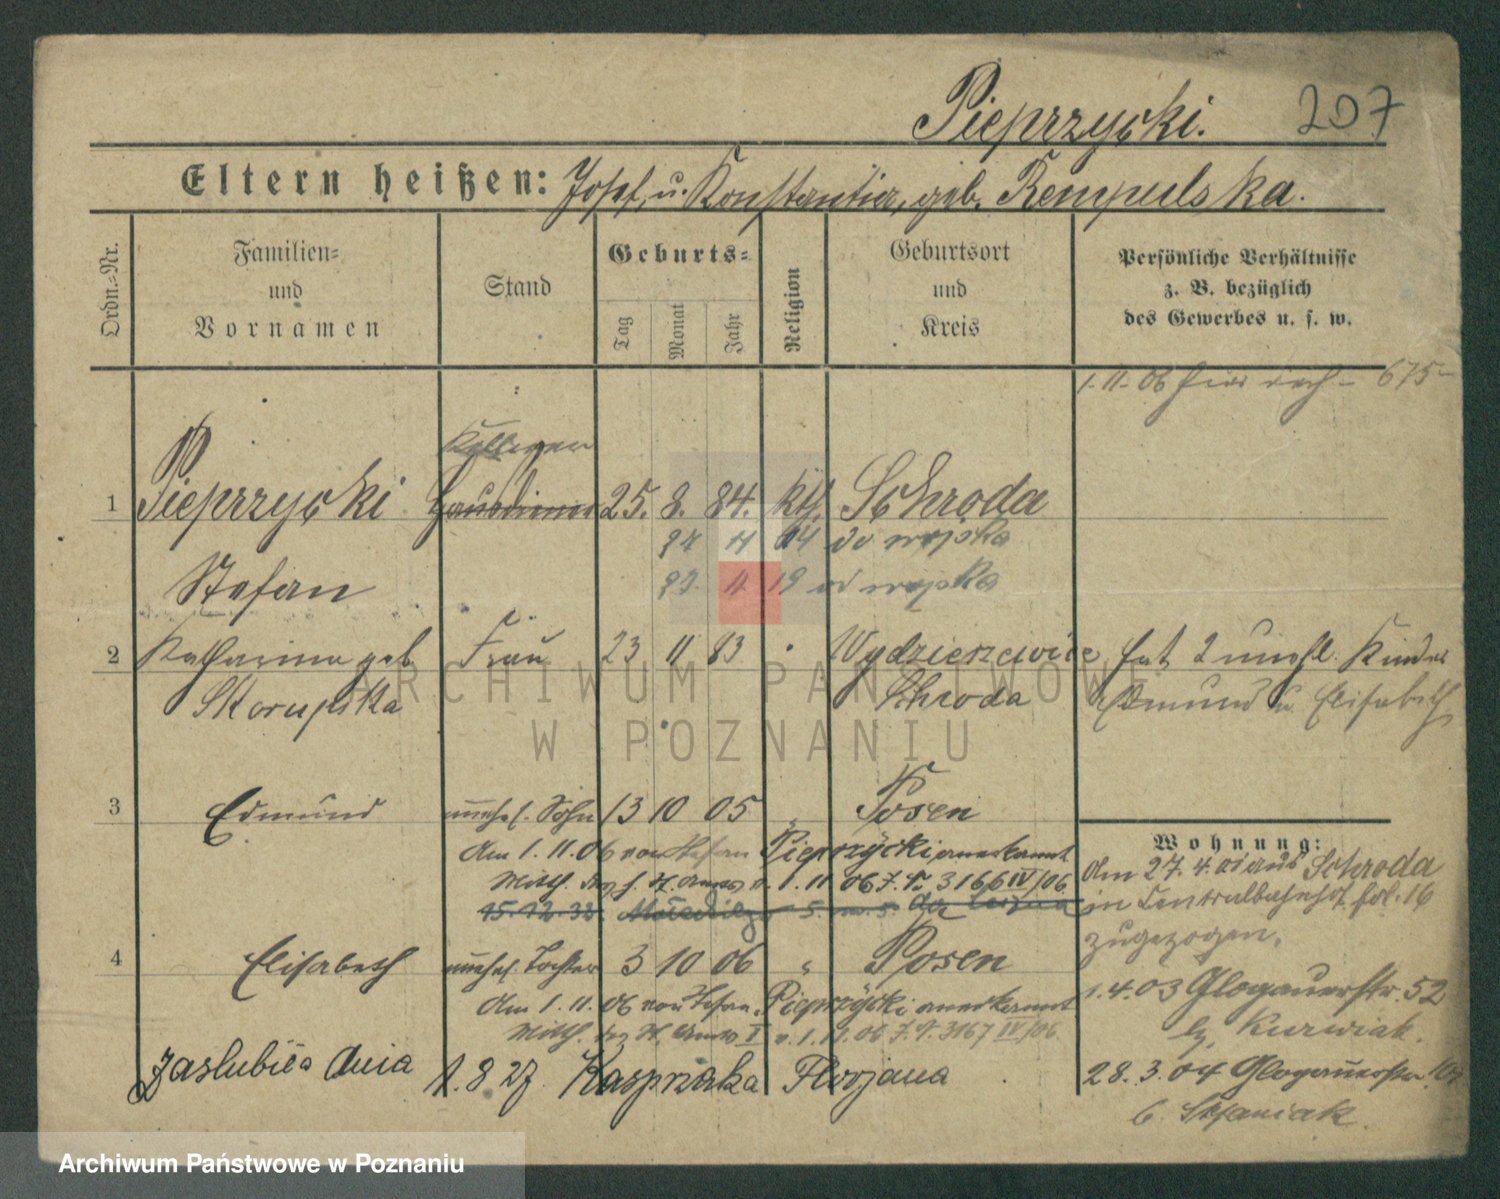 Pieprzycki. 207
Eltern heißen: Josef, u. Konstantia, geb. Rempulska.
Ordn.-Nr.
Familien-
und
Vornamen
Stand
Geburts-
Tag
Monat
Jahr
Religion
Geburtsort
und
Kreis
Persönliche Verhältnisse
z. B. bezüglich
des Gewerbes u. s. w.
1. 11. 06 675
1 Pieprzycki Hausdiener 25. 8. 84. kth. Schroda
14 do wojska
Stefan
19 od wojska
2 Katharina geb. Frau 23 11 83 Wydzierzewice hat 2 unehl. Kinder
Skorupska Schroda Edmund u. Elisabeth
3 Edmund unehel. Sohn 13 10 05 " Posen
Am 1. 11. 06 von Stefan Pieprzycki anerkannt
1. 11. 06 J. N. 3166 IV/06
15. 12. 33.
4 Elisabeth unehel. Tochter 3 10 06 " Posen
Am 1. 11. 06 von Stefan Pieprzycki anerkannt
v. 1. 11. 06 J. N. 3167 IV/06
Zaslubiła dnia 1. 8 27 Kasprzaka Florjana
Wohnung:
Am 27. 4. 01 aus Schroda
in Centralbahnhof fol. 16
zugezogen.
1. 4. 03 Glogauerstr. 52
b. Kurwiak.
28. 3. 04 Glogauerstr. 107
b. Stefaniak.
ARCHIWUM PAŃSTWOWE
W POZNANIU
Archiwum Państwowe w Poznaniu